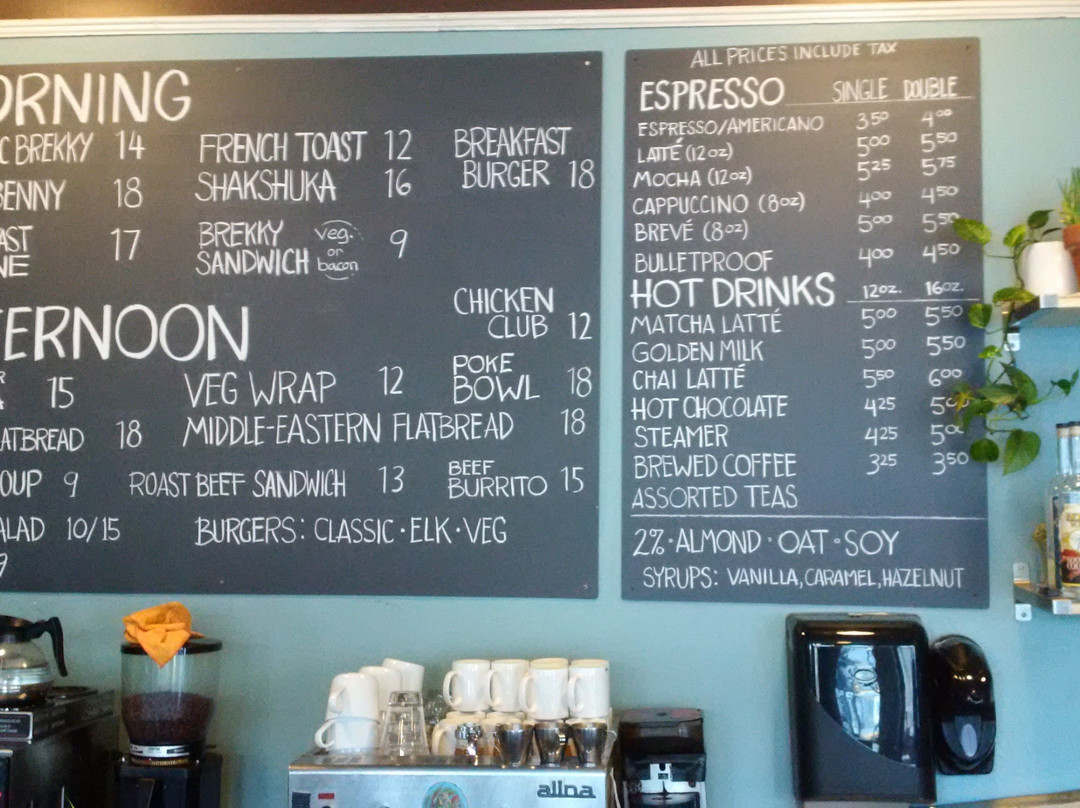 ORNING
C BREKKY 14
BENNY 18
AST
NE 17
FRENCH TOAST 12
SHAKSHUKA 16
BREKKY
SANDWICH
veg.
or
bacon
9
BREAKFAST
BURGER 18
ERNOON
R
15
ATBREAD 18
OUP 9
ALAD 10/15
9
VEG WRAP 12
MIDDLE-EASTERN FLATBREAD 18
ROAST BEEF SANDWICH 13
BURGERS: CLASSIC · ELK · VEG
CHICKEN
CLUB 12
POKE
BOWL 18
BEEF
BURRITO 15
ALL PRICES INCLUDE TAX
ESPRESSO SINGLE DOUBLE
ESPRESSO/AMERICANO 3 50 4 00
LATTÉ (12oz) 5 00 5 50
MOCHA (12oz) 5 25 5 75
CAPPUCCINO (8oz) 4 00 4 50
BREVÉ (8oz) 5 00 5 50
BULLETPROOF 4 00 4 50
HOT DRINKS 12oz. 16oz.
MATCHA LATTÉ 5 00 5 50
GOLDEN MILK 5 00 5 50
CHAI LATTÉ 5 50 6 00
HOT CHOCOLATE 4 25 5
STEAMER 4 25 5
BREWED COFFEE 3 25 3 50
ASSORTED TEAS
2% · ALMOND · OAT · SOY
SYRUPS: VANILLA, CARAMEL, HAZELNUT
allna